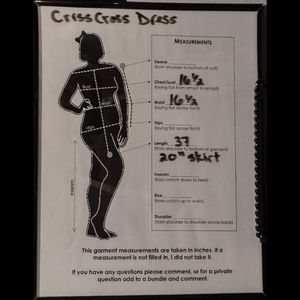 CrissCross Dress
MEASUREMENTS
Sleeve
(from shoulder to bottom of cuff)
Chest/bust 16 1/2
(laying flat from armpit to armpit)
Waist 16 1/2
(laying flat across front)
Hips
(laying flat across front)
Length 37
(from shoulder to bottom of garment)
20" skirt
Inseam
(from crotch down to hem)
Rise
(from crotch up to waist)
Shoulder
(from shoulder to shoulder across back)
Bust
Waist
Hips
Inseam
This garment measurements are taken in inches. If a
measurement is not filled in, I did not take it.
If you have any questions please comment, or for a private
question add to a bundle and comment.